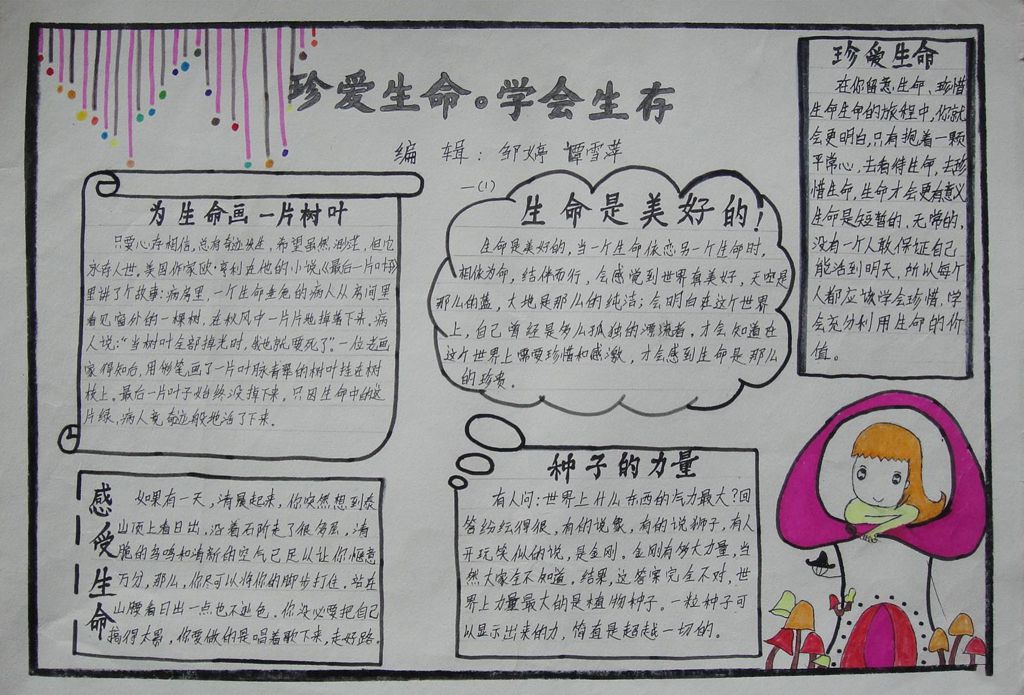 珍爱生命。学会生存
编 辑：邹婷 谭雪萍
一(1)
为生命画一片树叶
只要心存相信,总有奇迹发生,希望虽然渺茫,但它
永存人世。美国作家欧·亨利在他的小说《最后一片叶》
里讲了个故事:病房里,一个生命垂危的病人从房间里
看见窗外的一棵树,在秋风中一片片地掉落下来。病
人说:“当树叶全部掉光时,我也就要死了”。一位老画
家得知后,用彩笔画了一片叶脉青翠的树叶挂在树
枝上。最后一片叶子始终没掉下来。只因生命中的这
片绿,病人竟奇迹般地活了下来。
生命是美好的!
生命是美好的,当一个生命依恋另一个生命时,
相依为命,结伴而行,会感觉到世界真美好,天空是
那么的蓝,大地是那么的纯洁;会明白在这个世界
上,自己曾经是多么孤独的漂流者,才会知道在
这个世界上需要珍惜和感激,才会感到生命是那么
的珍贵。
珍爱生命
在你留意生命、珍惜
生命生命的旅程中,你就
会更明白,只有抱着一颗
平常心,去看待生命,去珍
惜生命,生命才会更有意义
生命是短暂的,无常的,
没有一个人敢保证自己
能活到明天,所以每个
人都应该学会珍惜,学
会充分利用生命的价
值。
感受生命
如果有一天,清晨起来,你突然想到泰
山顶上看日出,沿着石阶走了很多层,清
脆的鸟鸣和清新的空气已足以让你惬意
万分,那么,你尽可以将你的脚步打住。站在
山腰看日出一点也不逊色。你没必要把自己
搞得太累,你要做的是唱着歌下来,走好路。
种子的力量
有人问:世界上什么东西的气力最大?回
答纷纭得很,有的说象,有的说狮子,有人
开玩笑似的说,是金刚。金刚有多大力量,当
然大家全不知道。结果,这答案完全不对,世
界上力量最大的是植物种子。一粒种子可
以显示出来的力,简直是超越一切的。